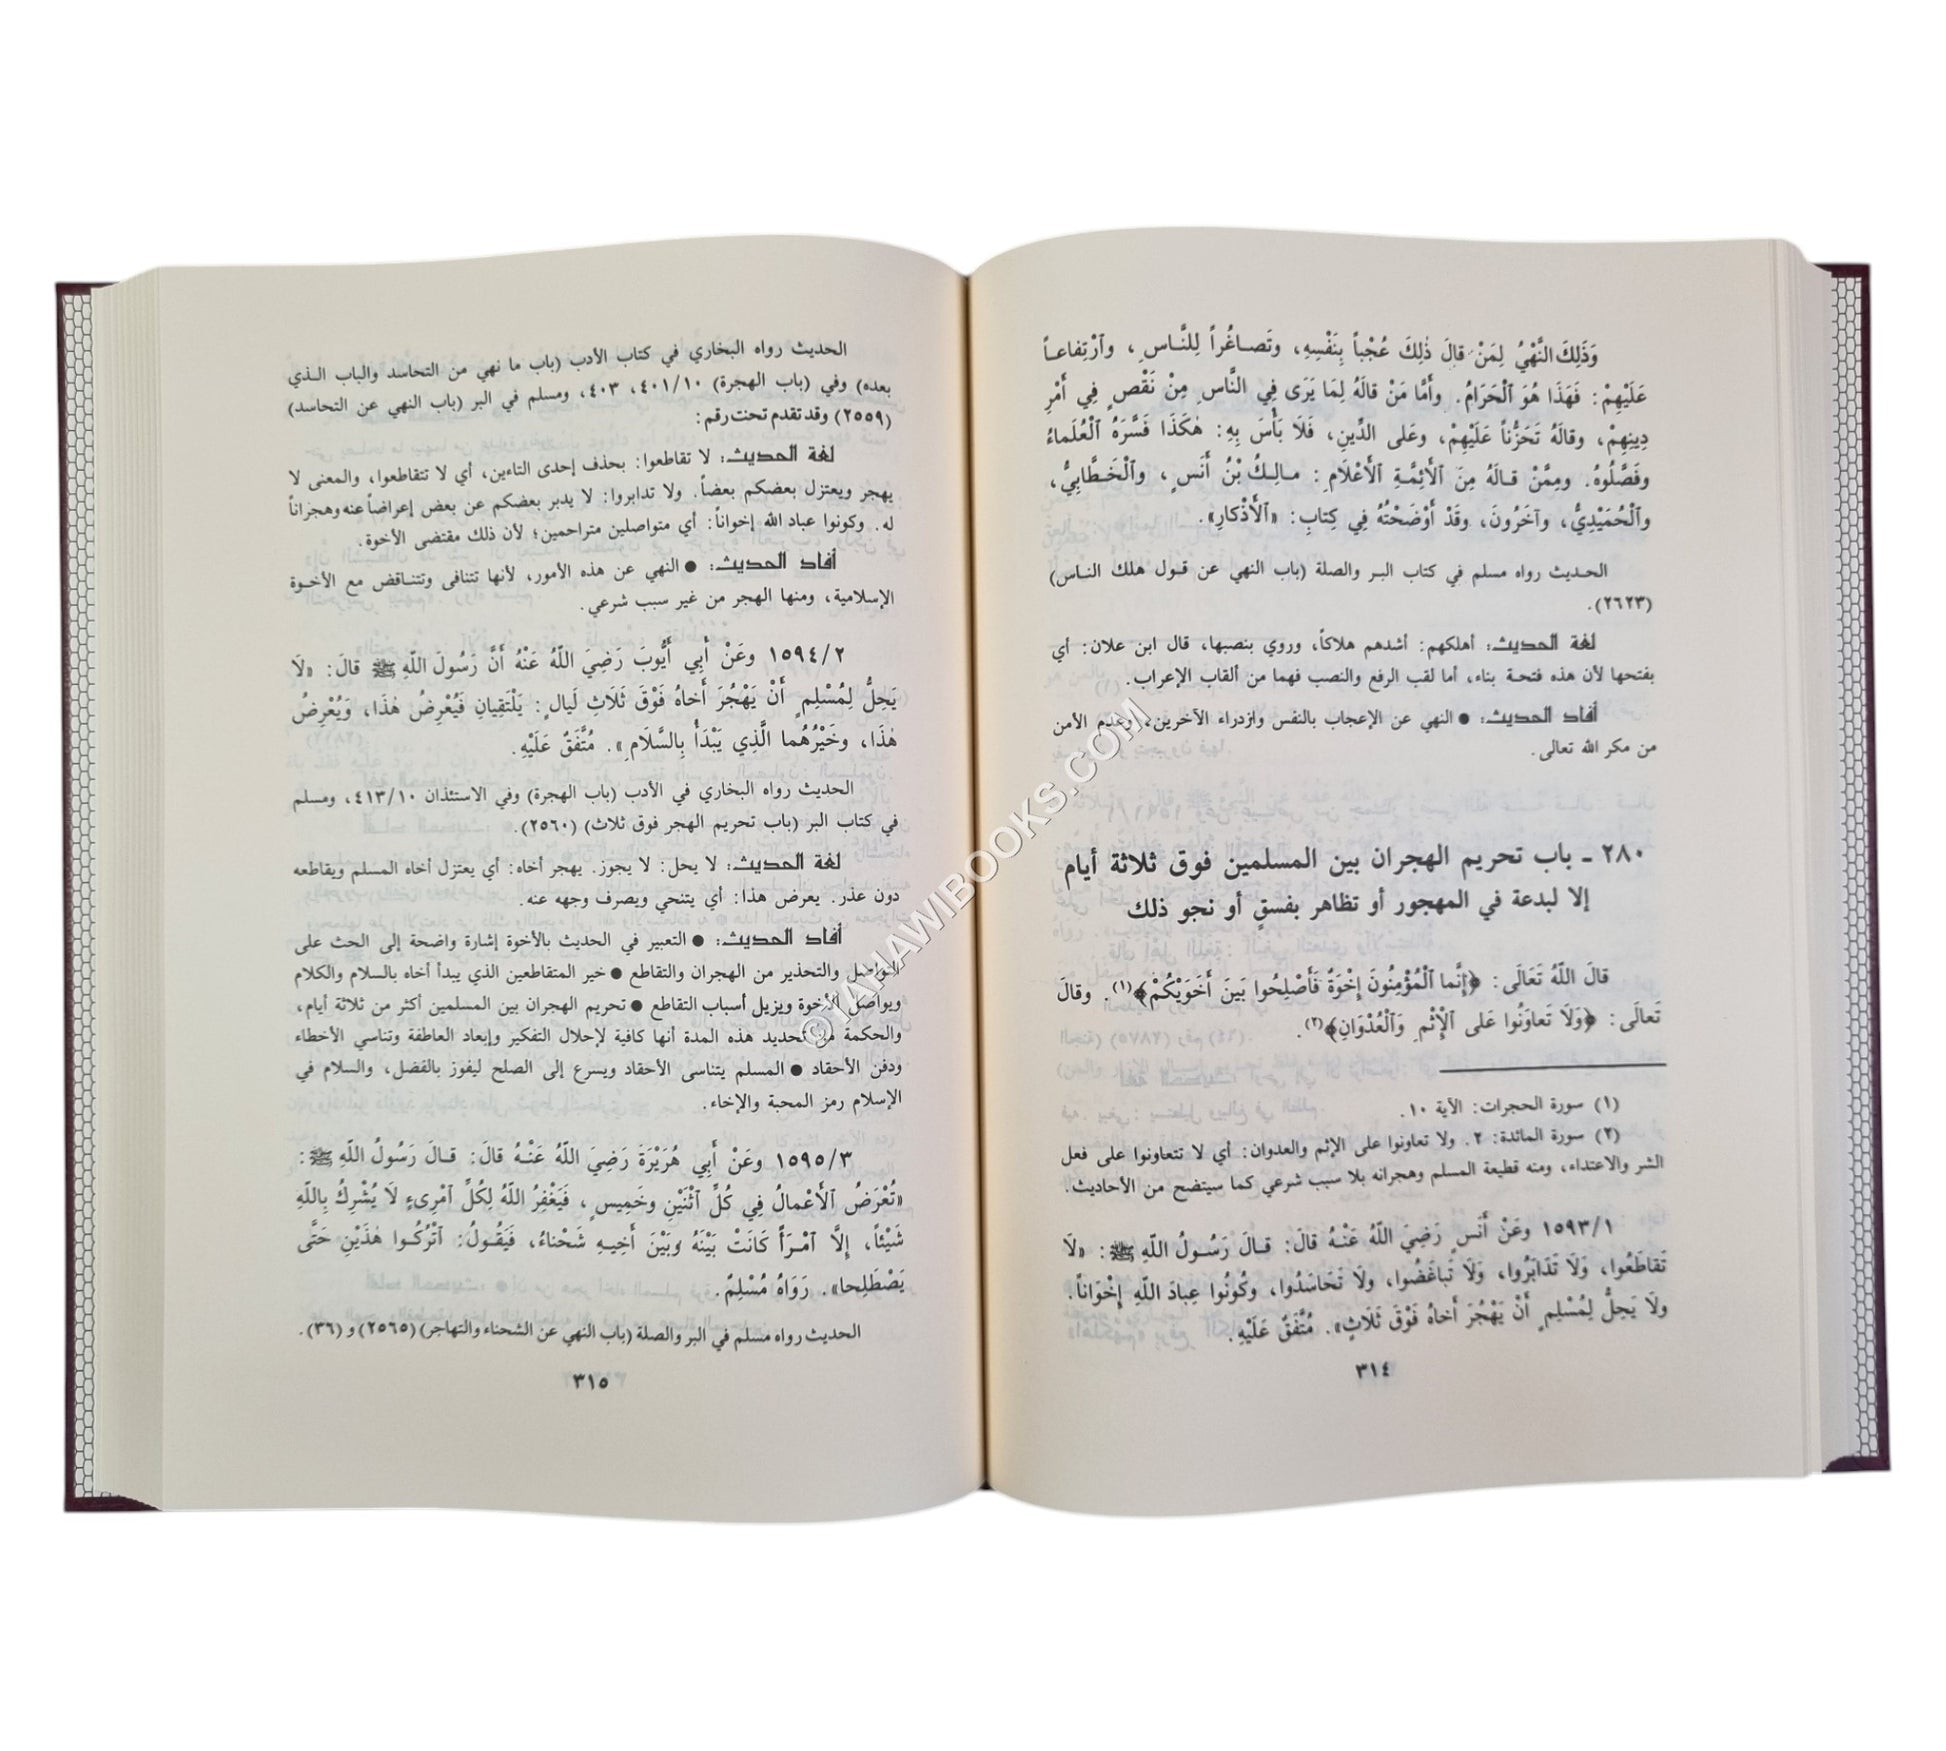 وَذَلِكَ النَّهْيُ لِمَنْ قالَ ذٰلِكَ عُجْباً بِنَفْسِهِ، وتَصـاغُراً لِلنَّـاسِ، وآرْتِفاعـاً
عَلَيْهِمْ: فَهَذَا هُوَ ٱلْحَرَامُ. وأَمَّا مَنْ قالَهُ لِمَا يَرَى فِي النَّاسِ مِنْ نَقْصٍ فِي أَمْرِ
دِينِهِمْ، وقالَهُ تَحَزُّناً عَلَيْهِمْ، وعَلى الدِّينِ، فَلَا بَأْسَ بِهِ: هٰكَذَا فَسَّرَهُ ٱلْعُلَماءُ
وفَصَّلُوهُ. ومِمَّنْ قـالَهُ مِنَ ٱلْأَئِمَّـةِ ٱلْأَعْلَامِ: مـالِـكُ بْنُ أَنَسٍ، وٱلْخَـطَّابِيُّ،
وٱلْحُمَيْدِيُّ، وآخَرُونَ، وقَدْ أَوْضَحْتُهُ فِي كِتابِ: «ٱلْأَذْكارِ».
الحـديث رواه مسلم في كتاب البـر والصلة (باب النهي عن قـول هلك النـاس)
(٢٦٢٣).
لغة الحديث: أهلكهم: أشدهم هلاكاً، وروي بنصبها، قال ابن علان: أي
بفتحها لأن هذه فتحـة بناء، أما لقب الرفع والنصب فهما من ألقاب الإعراب.
أفاد الحديث: ● النهي عن الإعجاب بالنفس وازدراء الآخرين، وعدم الأمن
من مكر الله تعالى.
٢٨٠ ـ باب تحريم الهجران بين المسلمين فوق ثلاثة أيام
إلا لبدعة في المهجور أو تظاهر بفسقٍ أو نحو ذلك
قالَ اللّهُ تَعَالَى: ﴿إِنَّما ٱلْمُؤْمِنُونَ إِخْوَةٌ فَأَصْلِحُوا بَينَ أَخَوَيْكُمْ﴾(١). وقالَ
تَعالَى: ﴿وَلَا تَعاوَنُوا عَلى ٱلْإِثْمِ وَٱلْعُدْوَانِ﴾(٢).
(١) سورة الحجرات: الآية ١٠.
(٢) سورة المائدة: ٢. ولا تعاونوا على الإثم والعدوان: أي لا تتعاونوا على فعل
الشر والاعتداء، ومنه قطيعة المسلم وهجرانه بلا سبب شرعي كما سيتضح من الأحاديث.
١٥٩٣/١ وعَنْ أَنَسٍ رَضِيَ اللّهُ عَنْـهُ قالَ: قـالَ رَسُـولُ اللّهِ ﷺ: «لَا
تَقاطَعُوا، وَلَا تَدَابَرُوا، وَلَا تَباغَضُوا، ولَا تَحَاسَدُوا، وكُونُوا عِبادَ اللّهِ إِخْوَاناً.
ولَا يَحِلُّ لِمُسْلِمٍ أَنْ يَهْجُرَ أَخاهُ فَوْقَ ثَلَاثٍ». مُتَّفَقٌ عَلَيْهِ.
٣١٤
الحديث رواه البخاري في كتاب الأدب (باب ما نهي من التحاسد والباب الـذي
بعده) وفي (باب الهجرة) ٤٠١/١٠، ٤٠٣، ومسلم في البر (باب النهي عن التحاسد)
(٢٥٥٩) وقد تقدم تحت رقم:
لغة الحديث: لا تقاطعوا: بحذف إحدى التاءين، أي لا تتقاطعوا، والمعنى لا
يهجر ويعتزل بعضكم بعضاً. ولا تدابروا: لا يدبر بعضكم عن بعض إعراضاً عنه وهجراناً
له. وكونوا عباد الله إخواناً: أي متواصلين متراحمين؛ لأن ذلك مقتضى الأخوة.
أفاد الحديث: ● النهي عن هذه الأمور، لأنها تتنافى وتتنـاقض مع الأخـوة
الإسلامية، ومنها الهجر من غير سبب شرعي.
١٥٩٤/٢ وعَنْ أَبِي أَيُّوبَ رَضِيَ اللّهُ عَنْهُ أَنَّ رَسُولَ اللّهِ ﷺ قالَ: «لَا
يَحِلُّ لِمُسْلِمٍ أَنْ يَهْجُرَ أَخاهُ فَوْقَ ثَلَاثِ لَيالٍ: يَلْتَقِيانِ فَيُعْرِضُ هٰذَا، وَيُعْرِضُ
هٰذَا، وخَيْرُهُما الَّذِي يَبْدَأُ بِالسَّلَامِ». مُتَّفَقٌ عَلَيْهِ.
الحديث رواه البخاري في الأدب (باب الهجرة) وفي الاستئذان ٤١٣/١٠، ومسلم
في كتاب البر (باب تحريم الهجر فوق ثلاث) (٢٥٦٠).
لغة الحديث: لا يحل: لا يجوز. يهجر أخاه: أي يعتزل أخاه المسلم ويقاطعه
دون عذر. يعرض هذا: أي يتنحي ويصرف وجهه عنه.
أفاد الحديث: ● التعبير في الحديث بالأخوة إشارة واضحة إلى الحث على
التواصل والتحذير من الهجران والتقاطع ● خير المتقاطعين الذي يبدأ أخاه بالسلام والكلام
ويواصل الأخوة ويزيل أسباب التقاطع ● تحريم الهجران بين المسلمين أكثر من ثلاثة أيام،
والحكمة من تحديد هذه المدة أنها كافية لإحلال التفكير وإبعاد العاطفة وتناسي الأخطاء
ودفن الأحقاد ● المسلم يتناسى الأحقاد ويسرع إلى الصلح ليفوز بالفضل، والسلام في
الإسلام رمز المحبة والإخاء.
١٥٩٥/٣ وعَنْ أَبِي هُرَيْرَةَ رَضِيَ اللّهُ عَنْـهُ قالَ: قـالَ رَسُولُ اللّهِ ﷺ:
«تُعْرَضُ ٱلْأَعْمالُ فِي كُلِّ ٱثْنَيْنِ وخَمِيسٍ، فَيَغْفِرُ اللّهُ لِكُلِّ ٱمْرِىءٍ لَا يُشْرِكُ بِاللّهِ
شَيْئاً، إِلَّا ٱمْـرَأً كَانَتْ بَيْنَهُ وبَيْنَ أَخِيـهِ شَحْناءُ، فَيَقُـولُ: ٱتْرُكُـوا هٰذَيْنِ حَتَّى
يَصْطَلِحا». رَوَاهُ مُسْلِمٌ.
الحديث رواه مسلم في البر والصلة (باب النهي عن الشحناء والتهاجر) (٢٥٦٥) و (٣٦).
٣١٥
© JAHAWIBOOKS.COM